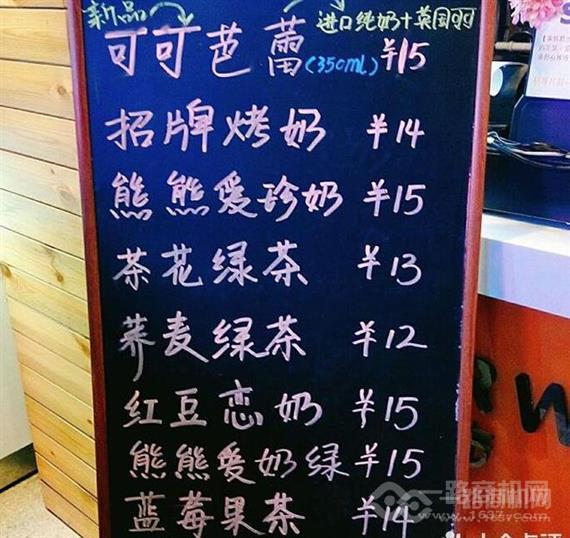 新品 进口纯奶+菜国99
可可芭蕾(350ml) ¥15
招牌烤奶 ¥14
熊熊爱珍奶 ¥15
茶花绿茶 ¥13
荞麦绿茶 ¥12
红豆恋奶 ¥15
熊熊爱奶绿 ¥15
蓝莓果茶 ¥14
路商机网
www.1637.com